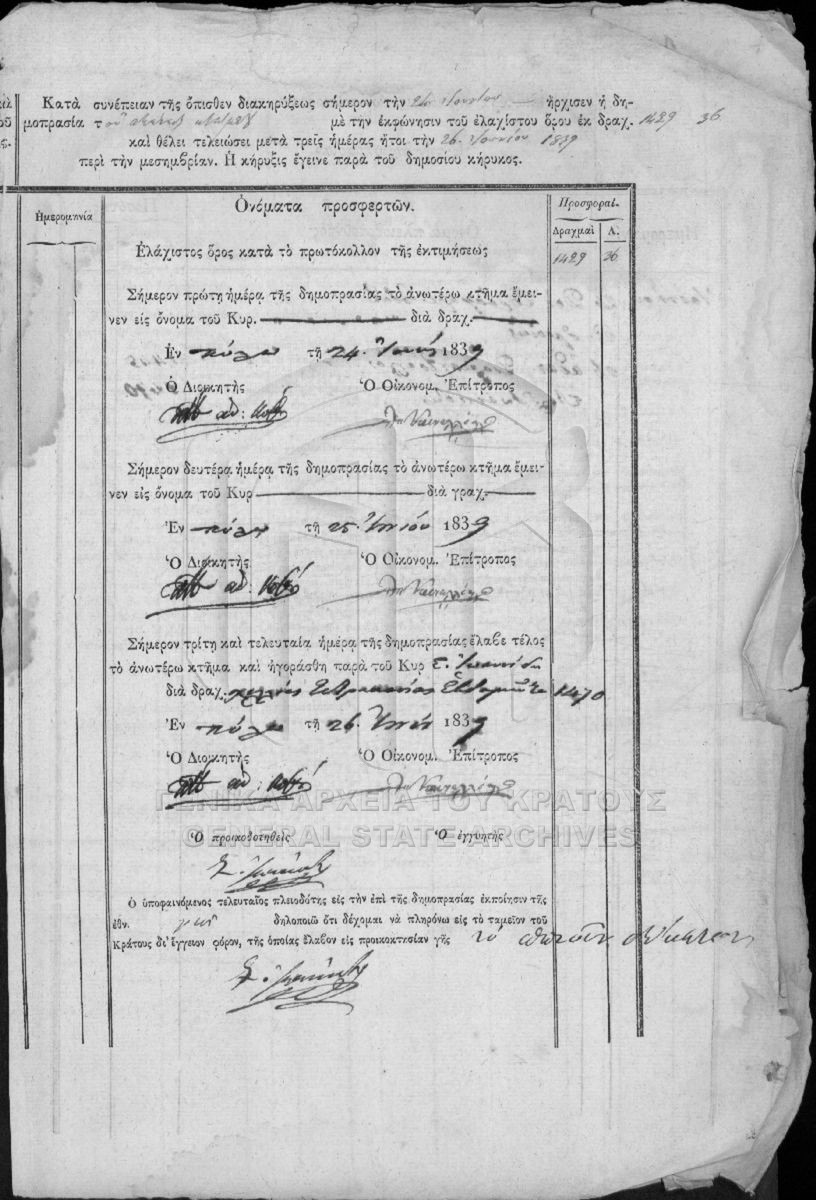 Κατὰ συνέπειαν τῆς ὄπισθεν διακηρύξεως σήμερον τὴν 24 Ἰουνίου ἤρχισεν ἡ δη-
μοπρασία τοῦ μὲ τὴν ἐκφώνησιν τοῦ ἐλαχίστου ὅρου ἐκ δραχ. 1429 36
καὶ θέλει τελειώσει μετὰ τρεῖς ἡμέρας ἤτοι τὴν 26 Ἰουνίου 1839
περὶ τὴν μεσημβρίαν. Ἡ κήρυξις ἔγεινε παρὰ τοῦ δημοσίου κήρυκος.
Ἡμερομηνία
Ὀνόματα προσφερτῶν.
Προσφοραί.
Δραχμαὶ Λ.
Ἐλάχιστος ὅρος κατὰ τὸ πρωτόκολλον τῆς ἐκτιμήσεως 1429 36
Σήμερον πρώτῃ ἡμέρᾳ τῆς δημοπρασίας τὸ ἀνωτέρω κτῆμα ἔμει-
νεν εἰς ὄνομα τοῦ Κυρ. διὰ δραχ.
Ἐν Πύλῳ τῇ 24 Ἰουνίου 1839
Ὁ Διοικητὴς Ὁ Οἰκονομ. Ἐπίτροπος
Σήμερον δευτέρᾳ ἡμέρᾳ τῆς δημοπρασίας τὸ ἀνωτέρω κτῆμα ἔμει-
νεν εἰς ὄνομα τοῦ Κυρ διὰ γραχ.
Ἐν Πύλῳ τῇ 25 Ἰουνίου 1839
Ὁ Διοικητὴς Ὁ Οἰκονομ. Ἐπίτροπος
Σήμερον τρίτῃ καὶ τελευταίᾳ ἡμέρᾳ τῆς δημοπρασίας ἔλαβε τέλος
τὸ ἀνωτέρω κτῆμα καὶ ἠγοράσθη παρὰ τοῦ Κυρ
διὰ δραχ. χιλίας τετρακοσίας ἑβδομῆντα 1470
Ἐν Πύλῳ τῇ 26 Ἰουνίου 1839
Ὁ Διοικητὴς Ὁ Οἰκονομ. Ἐπίτροπος
ΓΕΝΙΚΑ ΑΡΧΕΙΑ ΤΟΥ ΚΡΑΤΟΥΣ
GENERAL STATE ARCHIVES
Ὁ προικοδοτηθεὶς Ὁ ἐγγυητής
Ὁ ὑποφαινόμενος τελευταῖος πλειοδότης εἰς τὴν ἐπὶ τῆς δημοπρασίας ἐκποίησιν τῆς
ἐθν. γῆς δηλοποιῶ ὅτι δέχομαι νὰ πληρόνω εἰς τὸ ταμεῖον τοῦ
Κράτους δι' ἔγγειον φόρον, τῆς ὁποίας ἔλαβον εἰς προικοκτησίαν γῆς